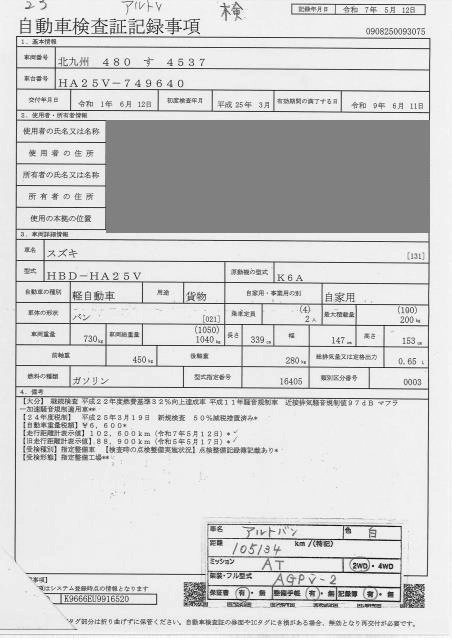 23 アルトV 検
記録年月日 令和 7年 5月 12日
自動車検査証記録事項
0908250093075
1．基本情報
車両番号 北九州 480 す 4537
車台番号 HA25V-749640
交付年月日 令和 1年 6月 12日 初度検査年月 平成 25年 3月 有効期間の満了する日 令和 9年 6月 11日
2．使用者・所有者情報
使用者の氏名又は名称
使用者の住所
所有者の氏名又は名称
所有者の住所
使用の本拠の位置
3．車両詳細情報
車名 スズキ [131]
型式 HBD-HA25V 原動機の型式 K6A
自動車の種別 軽自動車 用途 貨物 自家用・事業用の別 自家用
車体の形状 バン [021] 乗車定員 (4) 2人 最大積載量 (100) 200kg
車両重量 730kg 車両総重量 (1050) 1040kg 長さ 339cm 幅 147cm 高さ 153cm
前軸重 450kg 後軸重 280kg 総排気量又は定格出力 0.65L
燃料の種類 ガソリン 型式指定番号 16405 類別区分番号 0003
4．備考
【大分】 継続検査 平成22年度燃費基準32％向上達成車 平成11年騒音規制車 近接排気騒音規制値97dB マフラ
ー加速騒音規制適用車**
【24年度税制】 平成25年3月19日 新規検査 50％減税措置済み*
【自動車重量税額】¥6,600*
【走行距離計表示値】102,600km（令和7年5月12日）*
【旧走行距離計表示値】88,900km（令和5年5月17日）*
【受検種別】指定整備車 【検査時の点検整備実施状況】点検整備記録簿記載あり*
【受検形態】指定整備工場**
車名 アルトバン 色 白
距離 105134 km／(特記)
ミッション AT 2WD・4WD
架装・フル型式 AGPV-2
保証書 有・無 整備手帳 有・無 記録簿 有・無
はシステム登録時点の情報となります
K9666EU9916520
タグ部分は折り曲げずに保管ください。自動車検査証の券面やICタグに合損がある場合、無効となり再交付が必要です。